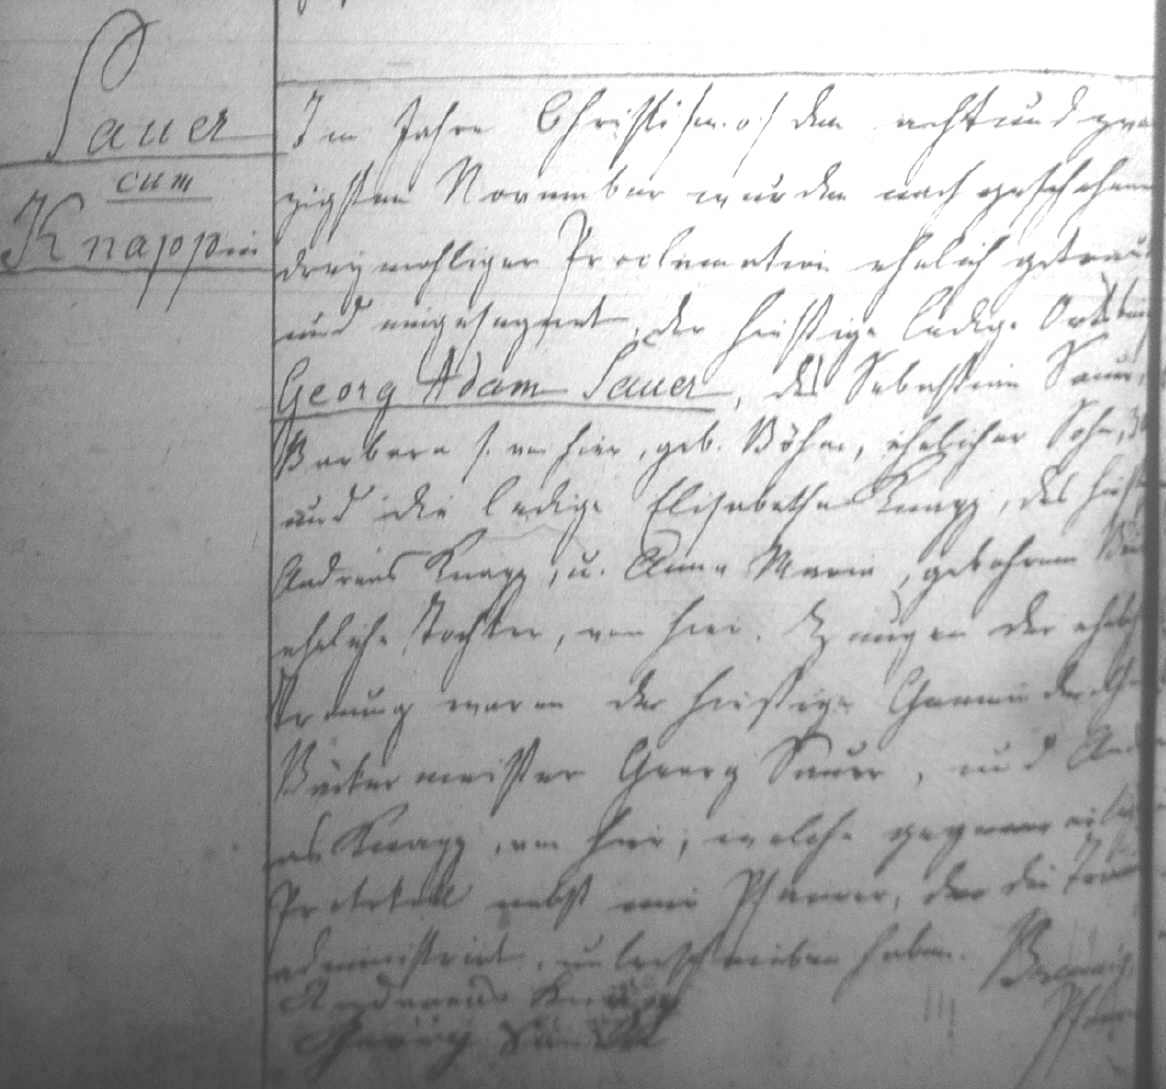 Sauer
cum
Knappin
Im Jahre Christi den achtundzwan
zigsten November wurden nach geschehener
dreymahliger Proclamation ehelich getraut
und eingesegnet, der hiesige ledige
Georg Adam Sauer, des Sebastian Sauer,
Barbara von hier, geb. Böhm, ehelicher Sohn,
und die ledige Elisabetha Knapp, des
Andreas Knapp, u. Anna Maria, gebohrene
eheliche Tochter, von hier. Zeugen der
Trauung waren der hiesige
Bäckermeister Georg Sauer, und
as Knapp, von hier, welche
Protokoll nebst mir Pfarrer, der die
administrirt, unterschrieben haben.
Andreas Knapp
Georg